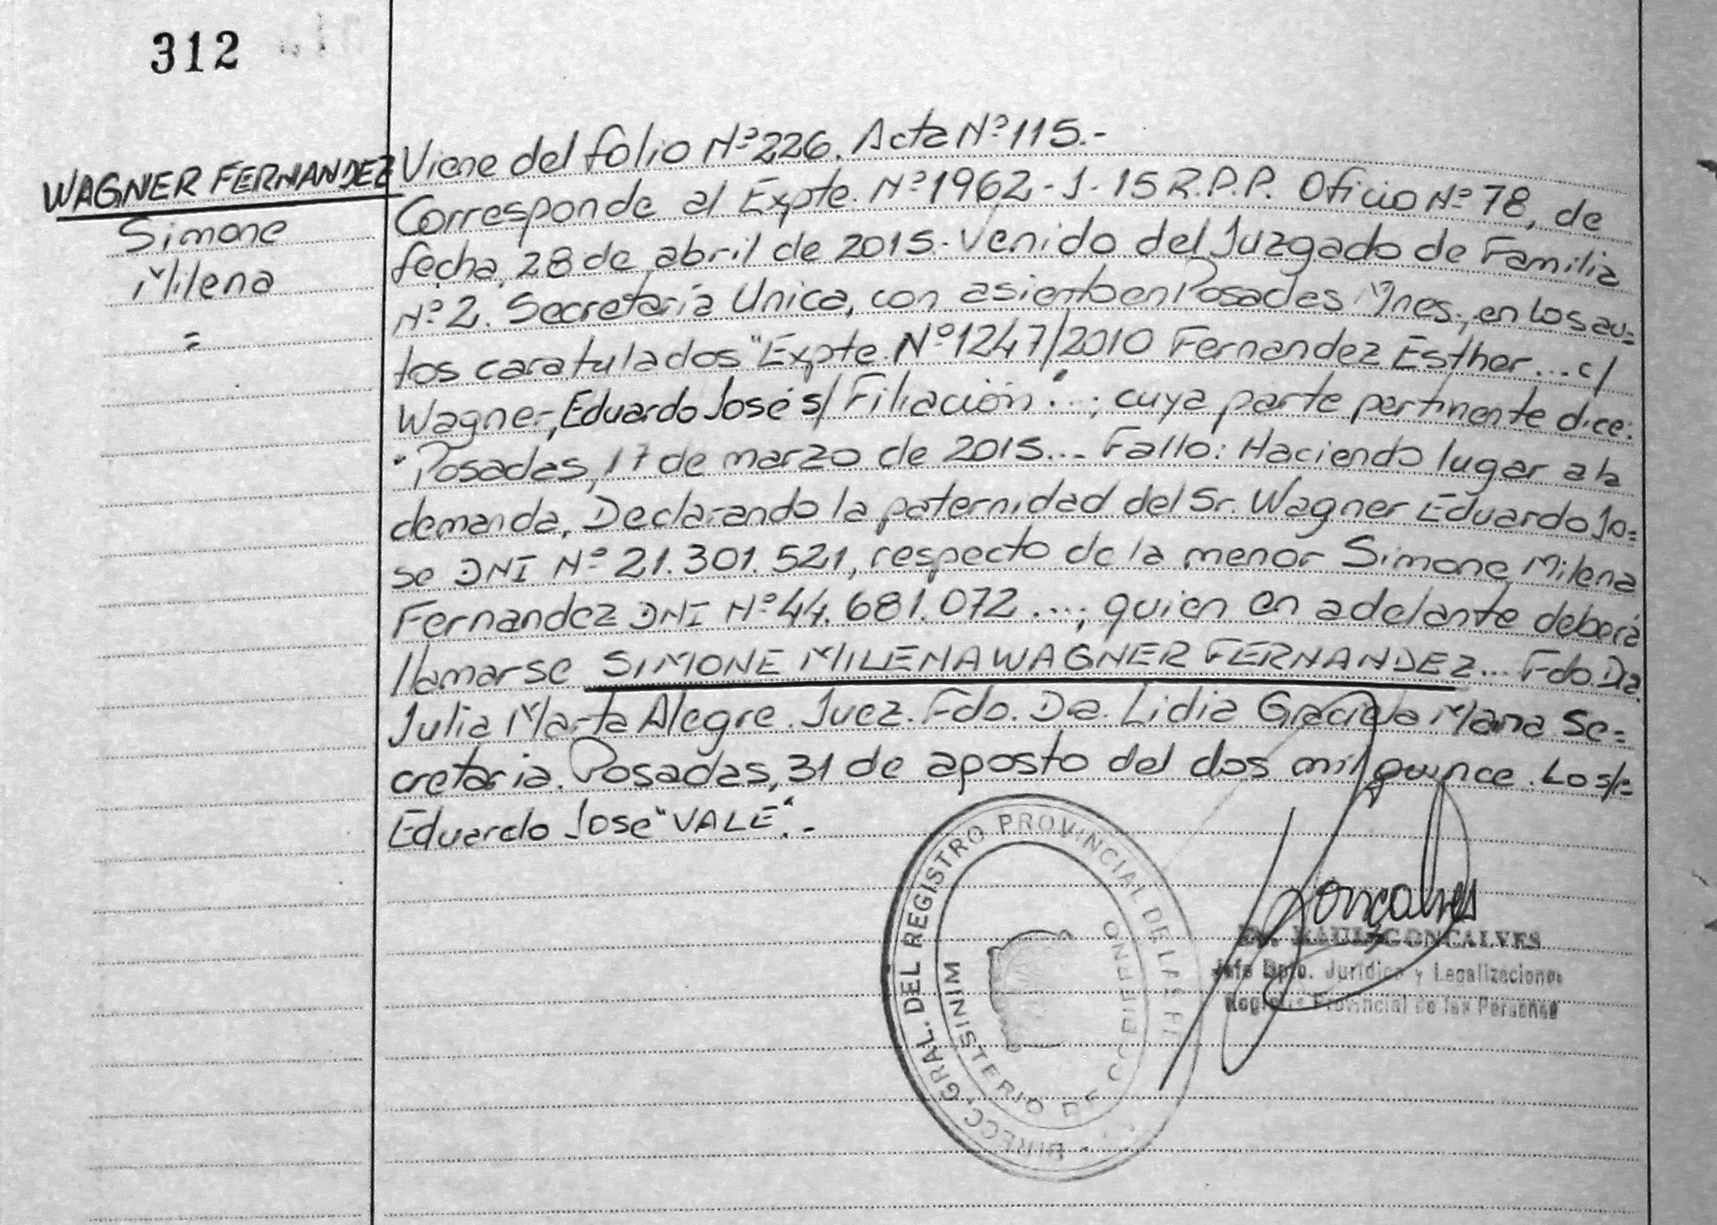 312
WAGNER FERNANDEZ
Simone
Milena
=
Viene del folio Nº226. Acta Nº115.-
Corresponde al Expte. Nº1962-J-15 R.P.P. Oficio Nº78, de
fecha, 28 de abril de 2015. Venido del Juzgado de Familia
Nº2. Secretaría Unica, con asiento en Posadas Mnes., en los au=
tos caratulados "Expte. Nº1247/2010 Fernandez Esther... c/
Wagner, Eduardo José s/ Filiación"...; cuya parte pertinente dice:
"Posadas, 17 de marzo de 2015... Fallo: Haciendo lugar a la
demanda, Declarando la paternidad del Sr. Wagner Eduardo Jo=
se DNI Nº 21.301.521, respecto de la menor Simone Milena
Fernandez DNI Nº44.681.072...; quien en adelante deberá
llamarse SIMONE MILENA WAGNER FERNANDEZ... Fdo. Da.
Julia Marta Alegre. Juez. Fdo. Da. Lidia Graciela Mana Se=
cretaria. Posadas, 31 de agosto del dos mil quince. Lo s/r=
Eduardo Jose "VALE".-
DIRECC. GRAL. DEL REGISTRO PROVINCIAL DE LAS
MINISTERIO DE GOBIERNO
Gonçalves
Dr. RAUL GONCALVES
Jefe Dpto. Jurídico y Legalizaciones
Registro Provincial de las Personas